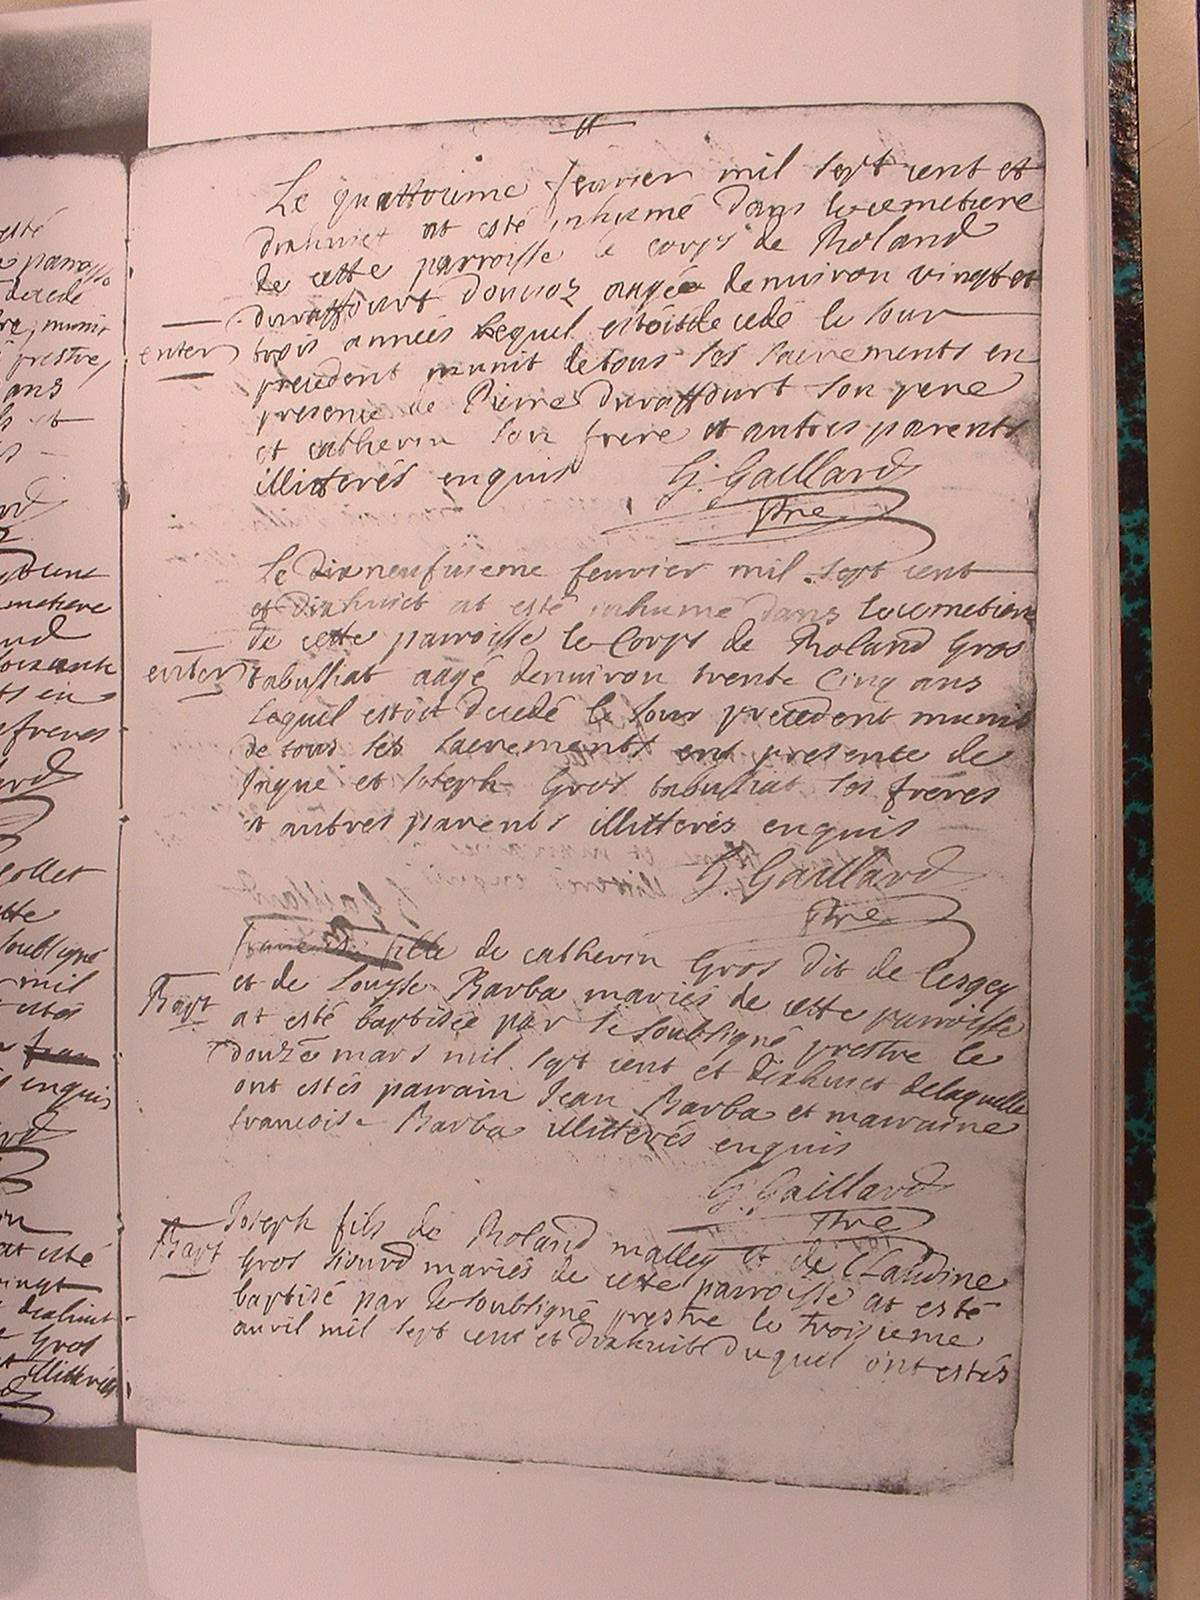 Le quattorieme fevrier mil sept cent et
dixhuict at esté inhumé dans le cemetiere
de cette parroisse le corps de Roland
duraffourt aagée denviron vingt et
enter
trois années Lequel estoit decedé le Jour
precedent munit de tous les sacrements en
presence de Pierre duraffourt son pere
et catherin son frere et autres parents
illitterés enquis
G. Gaillard
Ptre
Le dixneufvieme fevrier mil sept cent
et dixhuict at esté inhumé dans le cemetiere
de cette parroisse le Corps de Roland Gros
enter
tabusliat aagé denviron trente Cinq ans
Lequel estoit decedé le Jour precedent munit
de tous les sacrements en presente de
et Joseph Gros tabusliat ses fréres
et autres parents illitterés enquis
G. Gaillard
Ptre
fille de catherin Gros dit de lesgey
et de Louyse Barba mariés de cette parroisse
Bapt
at esté baptisée par le soubsigné prestre le
douzé mars mil sept cent et dixhuict delaquelle
ont estés parrain Jean Barba et marraine
francoise Barba illitterés enquis
G. Gaillard
Ptre
Joseph fils de Roland malley et de Claudine
Bapt
Gros siourd mariés de cette parroisse at esté
baptisé par le soubsigné prestre le troisieme
avril mil sept cent et dixhuict duquel ont estés
esté
decedé
munit
prestre
ans
enquis
at esté
vingt
Gros
illitterés